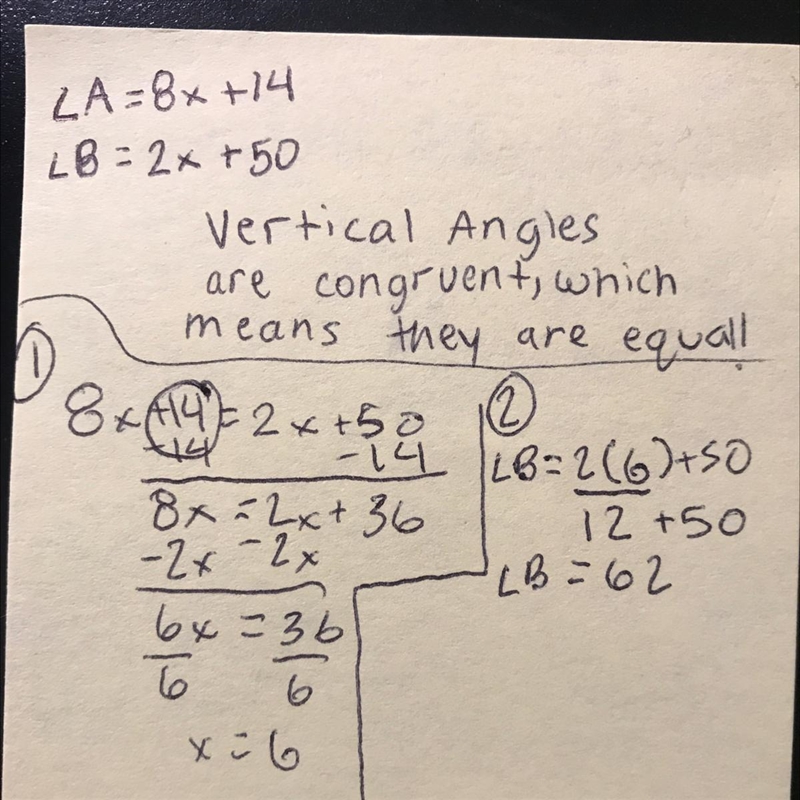 ∠A = 8x + 14
∠B = 2x + 50
Vertical Angles
are congruent, which
means they are equal!
1
8x +14 = 2x + 50
-14 -14
8x = 2x + 36
-2x -2x
6x = 36
6 6
x = 6
2
∠B = 2(6) + 50
12 + 50
∠B = 62